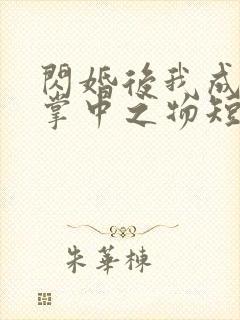 閃婚後我成
掌中之物短
朱華棟